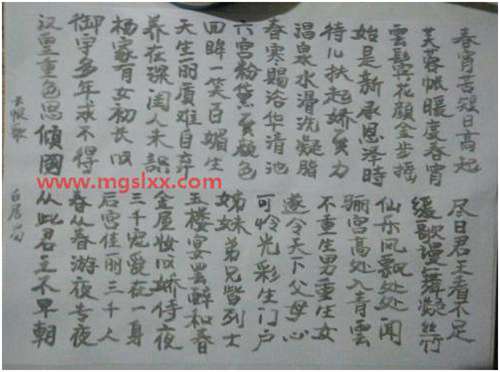 長恨歌
白居易
汉皇重色思傾國
御宇多年求不得
杨家有女初长成
养在深闺人未識
天生丽质难自弃
回眸一笑百媚生
六宫粉黛無颜色
春寒赐浴华清池
温泉水滑洗凝脂
侍儿扶起娇無力
始是新承恩泽时
雲鬓花颜金步摇
芙蓉帐暖度春宵
春宵苦短日高起
从此君王不早朝
春从春游夜专夜
后宫佳丽三千人
三千宠爱在一身
金屋妆成娇侍夜
玉楼宴罢醉和春
姊妹弟兄皆列土
可怜光彩生门户
遂令天下父母心
不重生男重生女
骊宫高处入青雲
仙乐风飘处处闻
缓歌谩舞凝丝竹
尽日君王看不足
www.mgslxx.com